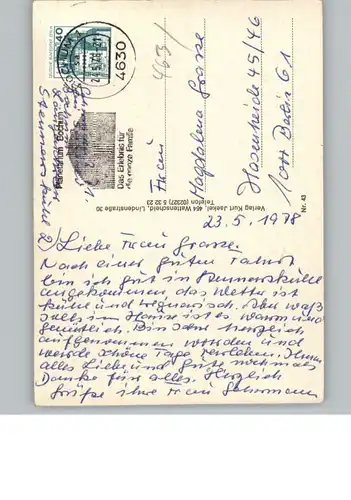 40
DEUTSCHE BUNDESPOST BERLIN
BOCHUM 1
24.5.78
4630
Planetarium Bochum
Das Erlebnis für
die ganze Familie
463/
Frau
Magdalena Grasse
Hasenheide 45/46
1000 Berlin 61
Verlag Kurt Jaekel, 464 Wattenscheid, Lindenstraße 30
Telefon (02327) 5 32 23
Nr. 43
23.5.1978
Liebe Frau Grasse.
Nach einer guten Fahrt
bin ich gut in
angekommen das Wetter ist
kühl und regnerisch. Aber
im Hause ist es warm und
gemütlich. Bin sehr herzlich
aufgenommen worden und
werde schöne Tage verleben. Ihnen
alles Liebe und gute nochmals
Danke für alles. Herzlich
grüße ihre Frau